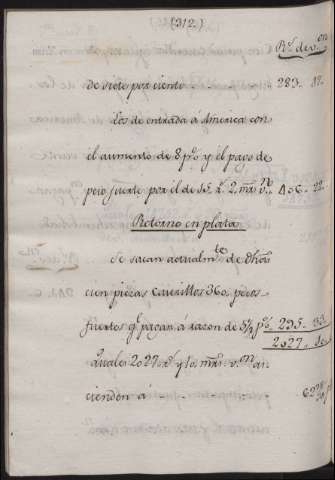 (312.)
R.^s de v.^on
de siete por ciento 283. 17.
Los de entrada á America con
el aumento de 8 p.^r o y el pago de
peso fuerte por el de 15 r.^s 2 mrs v.^n 456. 22.
Retorno en plata
Se sacan actualm.^te de dhas
cien piezas Caurillos 360. pesos
fuertes q.^e pagan á razon de 5½ p.^% 295. 33
2027. 10
quales 2027 r.^s y 10. mrs. v.^on as-
cienden á